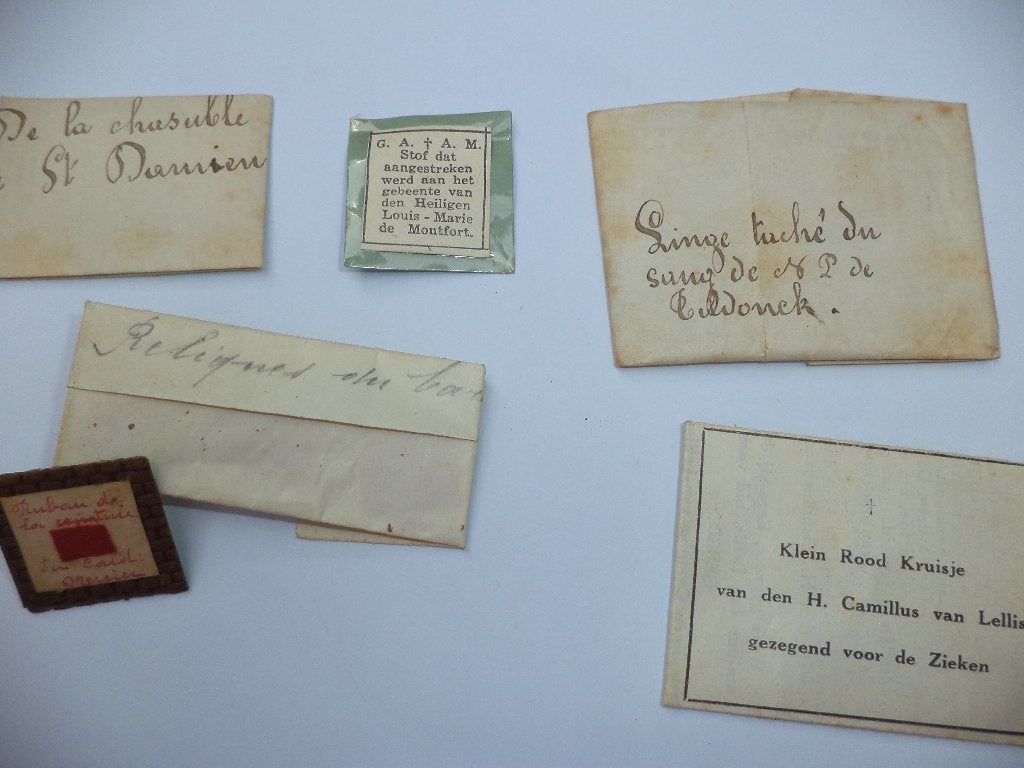 De la chasuble
St Damien
G. A. † A. M.
Stof dat
aangestreken
werd aan het
gebeente van
den Heiligen
Louis - Marie
de Montfort.
Linge taché du
sang de N P de
Reliques du
Ruban de
la ceinture
du Card.
Mercier
†
Klein Rood Kruisje
van den H. Camillus van Lellis
gezegend voor de Zieken